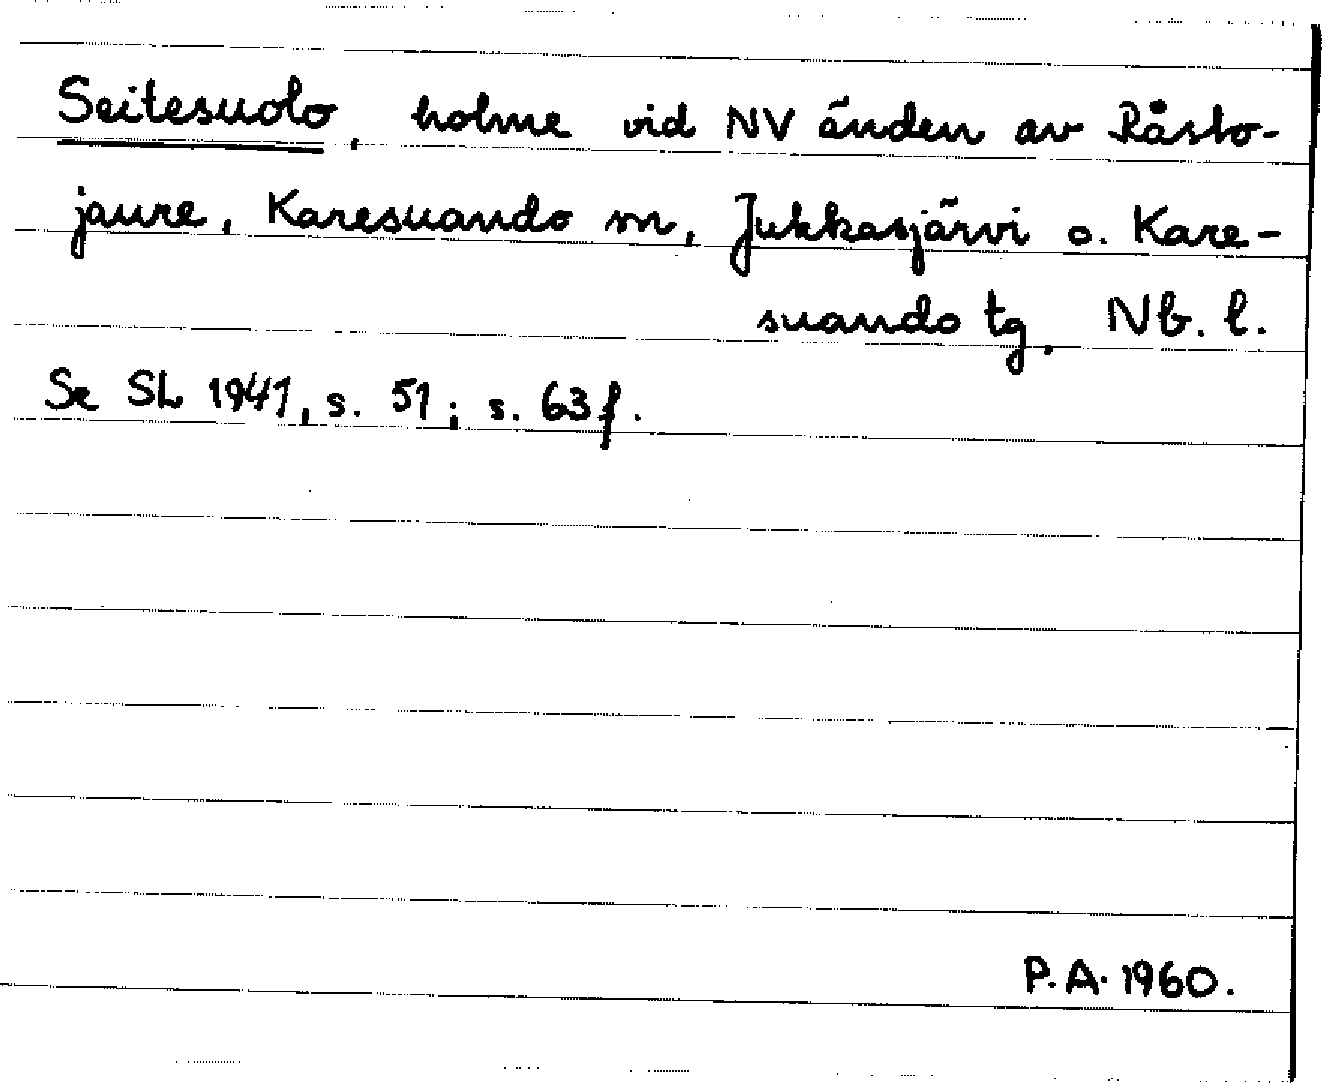 Seitesuolo, holme vid NV änden av Råsto-
jaure, Karesuando sn, Jukkasjärvi o. Kare-
suando tg. Nb. l.
Se SL 1941, s. 51; s. 63 f.
P.A. 1960.